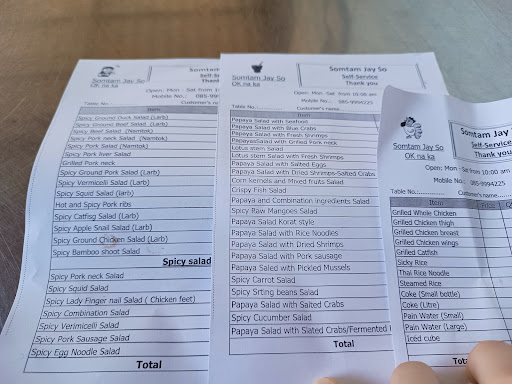 Somtam Jay So
OK na ka
Somtam
Self-Se
Thank
Open: Mon - Sat from 10
Mobile No.: 085-9994
Table No.
Customer's name
Item
Spicy Ground Duck Salad (Larb)
Spicy Ground Beef Salad (Larb)
Spicy Beef Salad (Namtok)
Spicy Pork neck Salad (Namtok)
Spicy Pork Salad (Namtok)
Spicy Pork liver Salad
Grilled Pork neck
Spicy Ground Pork Salad (Larb)
Spicy Vermicelli Salad (Larb)
Spicy Squid Salad (larb)
Hot and Spicy Pork ribs
Spicy Catfisg Salad (Larb)
Spicy Apple Snail Salad (Larb)
Spicy Ground Chicken Salad (Larb)
Spicy Bamboo shoot Salad
Spicy salad
Spicy Pork neck Salad
Spicy Squid Salad
Spicy Lady Finger nail Salad ( Chicken feet)
Spicy Combination Salad
Spicy Verimicelli Salad
Spicy Pork Sausage Salad
Spicy Egg Noodle Salad
Total
Somtam Jay So
OK na ka
Somtam Jay So
Self-Service
Thank you
Open: Mon - Sat from 10:00 am
Mobile No.: 085-9994225
Table No.
Customer's name
Item
Papaya Salad with Seafood
Papaya Salad with Blue Crabs
Papaya Salad with Fresh Shrimps
PapayasSalad with Grilled Pork neck
Lotus stem Salad
Lotus stem Salad with Fresh Shrimps
Papaya Salad with Salted Eggs
Papaya Salad with Dried Shrimps-Salted Crabs
Corn kernels and Mixed fruits Salad
Crispy Fish Salad
Papaya and Combination ingredients Salad
Spicy Raw Mangoes Salad
Papaya Salad Korat style
Papaya Salad with Rice Noodles
Papaya Salad with Dried Shrimps
Papaya Salad with Pork sausage
Papaya Saled with Pickled Mussels
Spicy Carrot Salad
Spicy Srting beans Salad
Papaya Salad with Salted Crabs
Spicy Cucumber Salad
Papaya Salad with Slated Crabs/Fermented
Total
Somtam Jay So
OK na ka
Somtam Jay
Self-Service
Thank you
Open: Mon - Sat from 10:00 am
Mobile No.: 085-9994225
Table No.
Customer's name
Item
Price
Grilled Whole Chicken
Grilled Chicken thigh
Grilled Chicken breast
Grilled Chicken wings
Grilled Catfish
Sicky Rice
Thai Rice Noodle
Steamed Rice
Coke (Small bottle)
Coke (Litre)
Pain Water (Small)
Pain Water (Large)
Iced cube
Tota